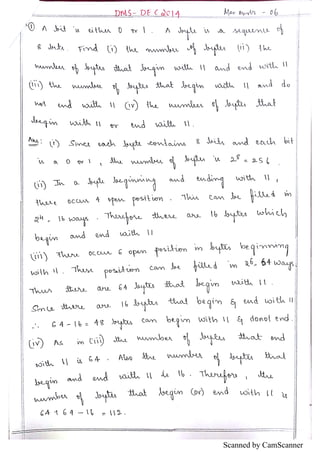 DMS- DEC 2014
Marks - 06
① A bit is either 0 or 1. A byte is a sequence of
8 bits. Find (i) the number of bytes (ii) the
number of bytes that begin with 11 and end with 11
(iii) the number of bytes that begin with 11 and do
not end with 11 (iv) the number of bytes that
begin with 11 or end with 11.
Ans: (i) Since each byte contains 8 bits and each bit
is a 0 or 1, the number of bytes is 2⁸ = 256
(ii) In a byte beginning and ending with 11,
there occur 4 open position. This can be filled in
2⁴ = 16 ways. Therefore there are 16 bytes which
begin and end with 11
(iii) There occur 6 open position in bytes beginning
with 11. These position can be filled in 2⁶, 64 ways.
Thus there are 64 bytes that begin with 11.
Since there are 16 bytes that begin & end with 11
∴ 64-16 = 48 bytes can begin with 11 & donot end.
(iv) As in (iii) the number of bytes that end
with 11 is 64. Also the number of bytes that
begin and end with 11 is 16. Therefore, the
number of bytes that begin (or) end with 11 is
64 + 64 - 16 = 112.
Scanned by CamScanner